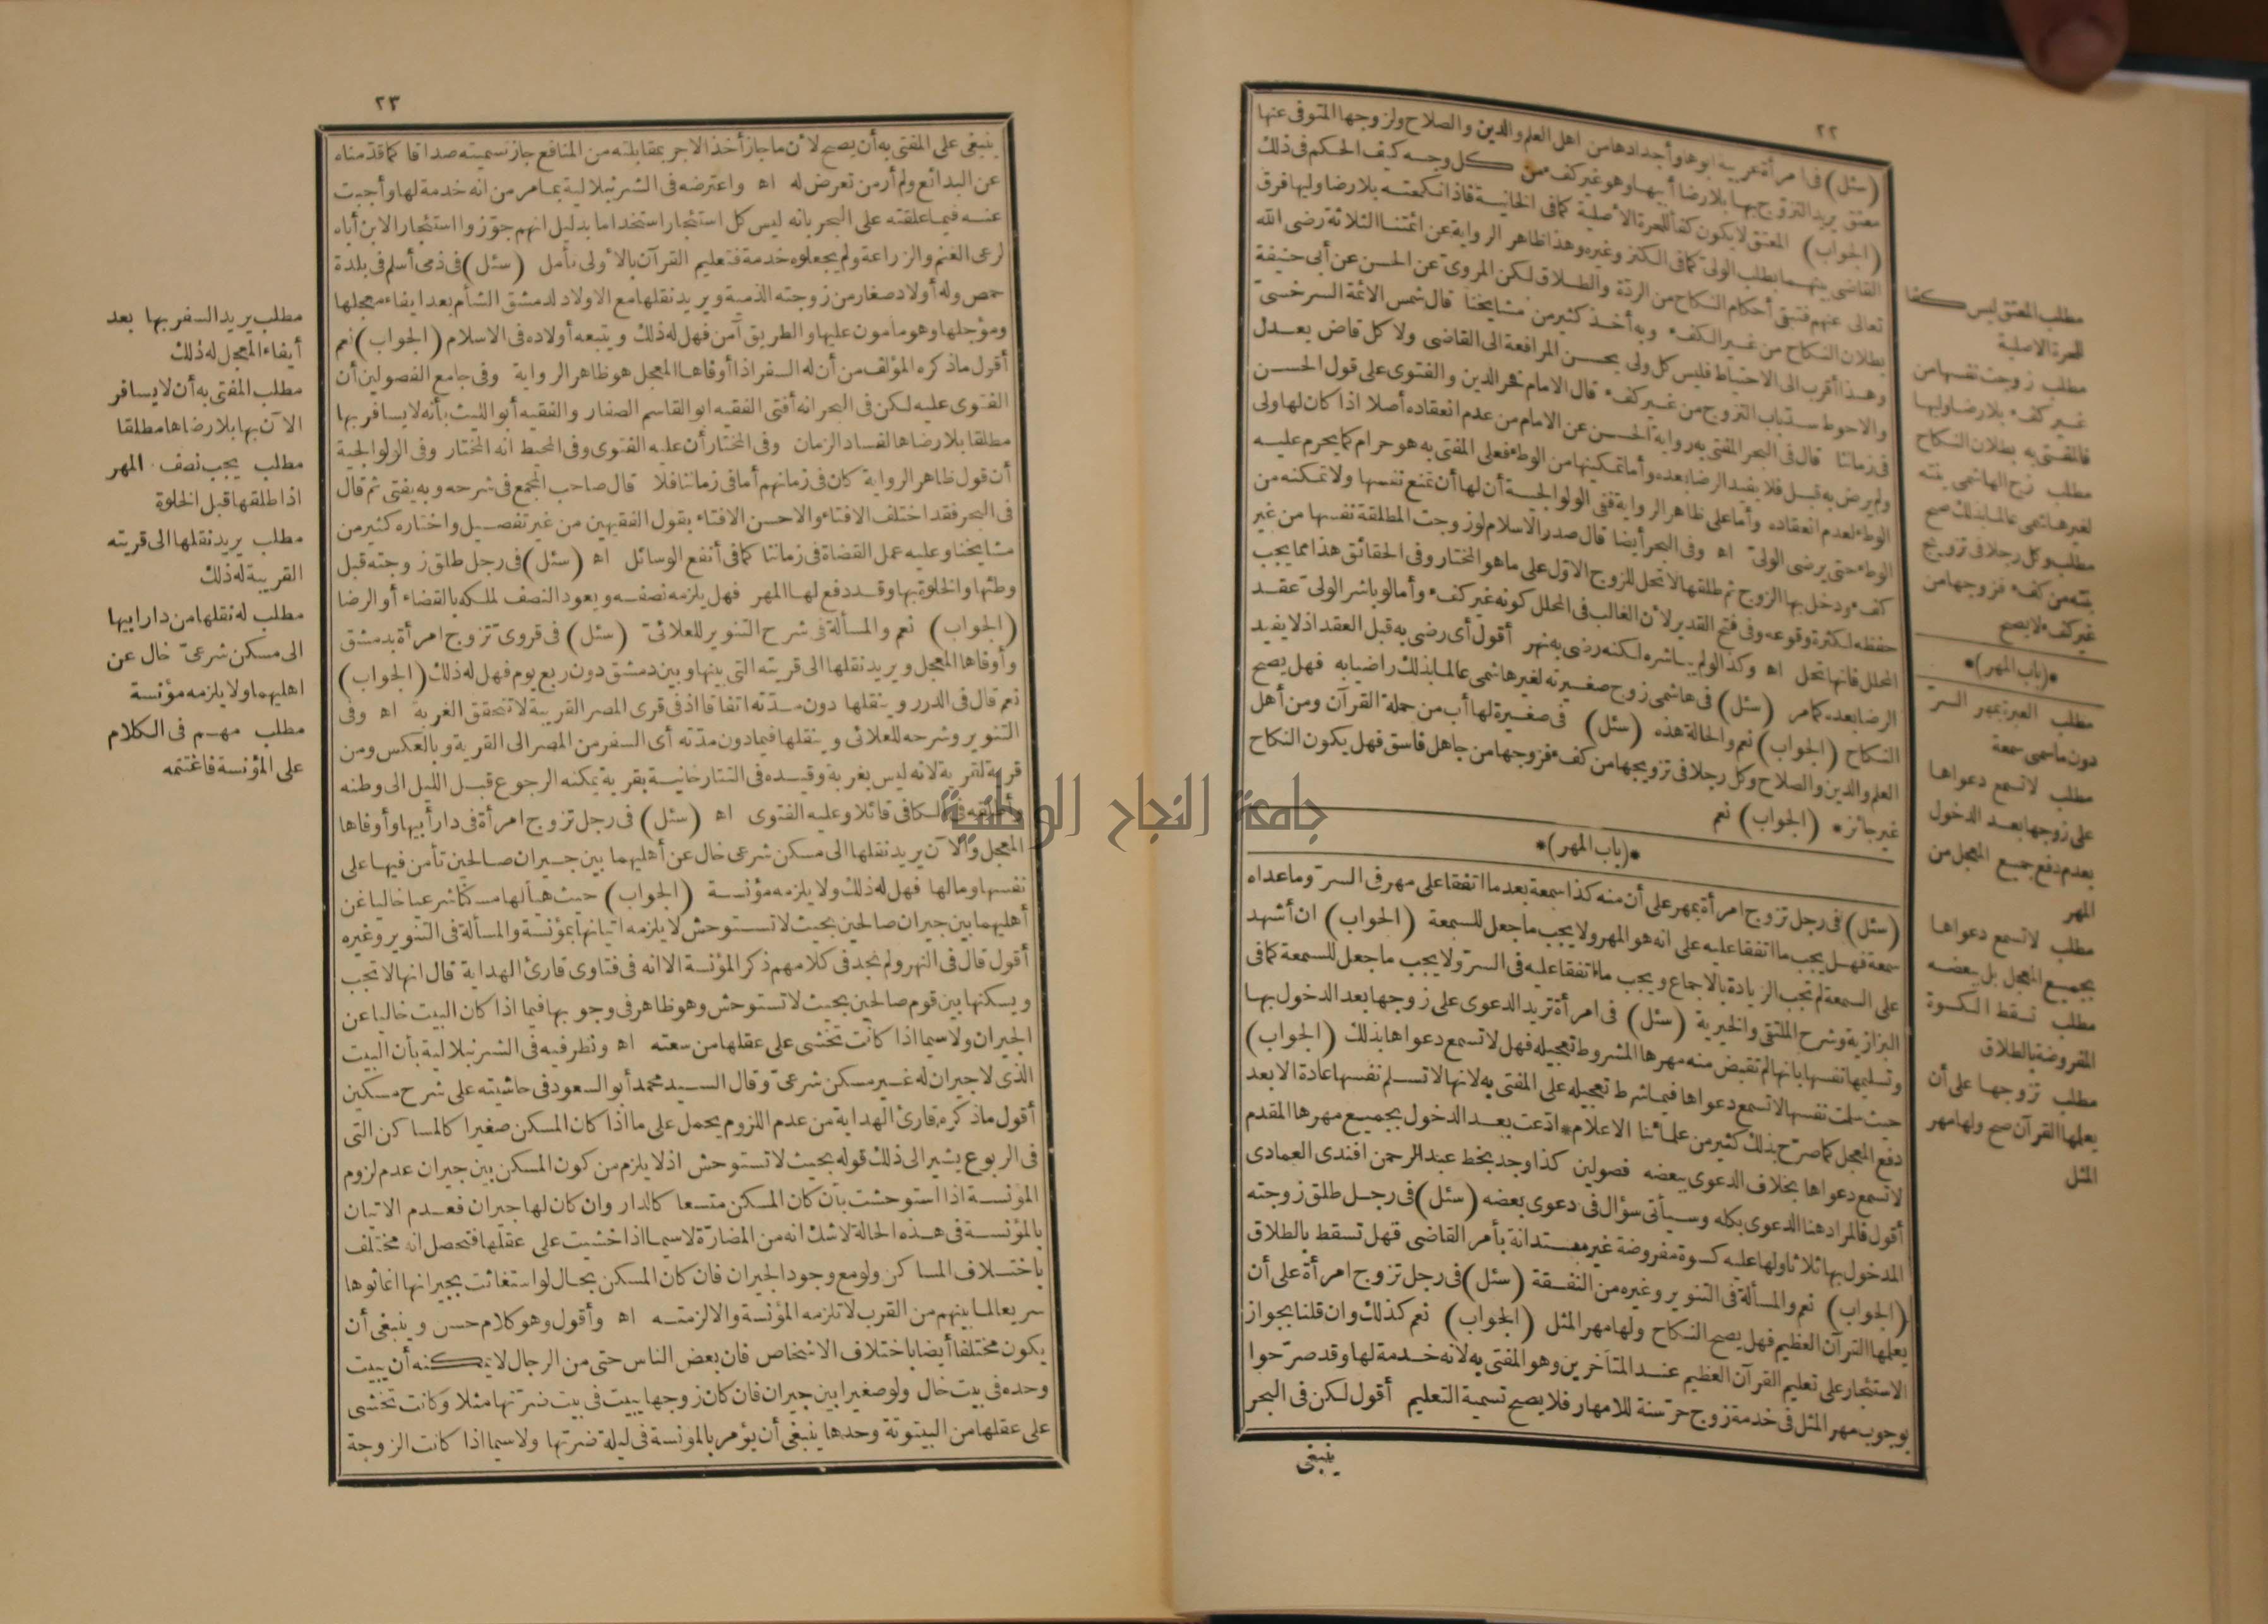 ٢٢
(سئل) فى امرأة عربية ابوها وأجدادها من اهل العلم والدين والصلاح ولزوجها المتوفى عنها
معتق يريد التزوج بها بلا رضا أبيها وهو غير كفء من كل وجه كيف الحكم فى ذلك
(الجواب) المعتق لا يكون كفأ للحرة الاصلية كما فى الخانية فاذا نكحته بلا رضا وليها فرق
القاضى بينهما بطلب الولى كما فى الكنز وغيره وهذا ظاهر الرواية عن ائمتنا الثلاثة رضى الله
تعالى عنهم فتبقى أحكام النكاح من الردة والطلاق لكن المروى عن الحسن عن أبى حنيفة
بطلان النكاح من غير الكفء وبه أخذ كثير من مشايخنا قال شمس الائمة السرخسى
وهذا أقرب الى الاحتياط فليس كل ولى يحسن المرافعة الى القاضى ولا كل قاض يعدل
والاحوط سد باب التزوج من غير كفء قال الامام فخر الدين والفتوى على قول الحسن
فى زماننا قال فى البحر المفتى به رواية الحسن عن الامام من عدم انعقاده أصلا اذا كان لها ولى
ولم يرض به قبل فلا يفيد الرضا بعده وأما تمكينها من الوطء فعلى المفتى به هو حرام كما يحرم عليه
الوطء لعدم انعقاده وأما على ظاهر الرواية ففى الولوالجية أن لها أن تمنع نفسها ولا تمكنه من
الوطء حتى يرضى الولى اه وفى البحر أيضا قال صدر الاسلام لو زوجت المطلقة نفسها من غير
كفء ودخل بها الزوج ثم طلقها لا تحل للزوج الاول على ما هو المختار وفى الحقائق هذا مما يجب
حفظه لكثرة وقوعه وفى فتح القدير لأن الغالب فى المحلل كونه غير كفء وأما لو باشر الولى عقد
المحلل فانها تحل اه وكذا لو لم يباشره لكنه رضى به نهر أقول أى رضى به قبل العقد اذ لا يفيد
الرضا بعده كما مر (سئل) فى هاشمى زوج صغيرته لغير هاشمى عالما بذلك راضيا به فهل يصح
النكاح (الجواب) نعم والحالة هذه (سئل) فى صغيرة لها أب من حملة القرآن ومن أهل
العلم والدين والصلاح وكل رجلا فى تزويجها من كفء فزوجها من جاهل فاسق فهل يكون النكاح
غير جائز * (الجواب) نعم
*(باب المهر)*
(سئل) فى رجل تزوج امرأة بمهر على أن منه كذا سمعة بعد ما اتفقا على مهر فى السر وما عداه
سمعة فهل يجب ما اتفقا عليه على انه هو المهر ولا يجب ما جعل للسمعة (الجواب) ان أشهد
على السمعة لم تجب الزيادة بالاجماع ويجب ما اتفقا عليه فى السر ولا يجب ما جعل للسمعة كما فى
البزازية وشرح الملتقى والخيرية (سئل) فى امرأة تريد الدعوى على زوجها بعد الدخول بها
وتسليمها نفسها بانها لم تقبض منه مهرها المشروط تعجيله فهل لا تسمع دعواها بذلك (الجواب)
حيث سلمت نفسها لا تسمع دعواها فيما شرط تعجيله على المفتى به لانها لا تسلم نفسها عادة الا بعد
دفع المعجل كما صرح بذلك كثير من علمائنا الاعلام * ادعت بعد الدخول بجميع مهرها المقدم
لا تسمع دعواها بخلاف الدعوى ببعضه فصولين كذا وجد بخط عبد الرحمن افندى العمادى
أقول فالمراد هنا الدعوى بكله وسيأتى سؤال فى دعوى بعضه (سئل) فى رجل طلق زوجته
المدخول بها ثلاثا ولها عليه كسوة مفروضة غير مستدانة بأمر القاضى فهل تسقط بالطلاق
(الجواب) نعم والمسألة فى التنوير وغيره من النفقة (سئل) فى رجل تزوج امرأة على أن
يعلمها القرآن العظيم فهل يصح النكاح ولها مهر المثل (الجواب) نعم كذلك وان قلنا بجواز
الاستئجار على تعليم القرآن العظيم عند المتأخرين وهو المفتى به لانه خدمة لها وقد صرحوا
بوجوب مهر المثل فى خدمة زوج حر سنة للامهار فلا يصح تسمية التعليم أقول لكن فى البحر
ينبغى
مطلب المعتق ليس كفا
للحرة الاصلية
مطلب زوجت نفسها من
غير كفء بلا رضا وليها
فالمفتى به بطلان النكاح
مطلب زوج الهاشمى بنته
لغير هاشمى عالما بذلك صح
مطلب وكل رجلا فى تزويج
بنته من كفء فزوجها من
غير كفء لا يصح
*(باب المهر)*
مطلب العبرة بمهر السر
دون ما سمى سمعة
مطلب لا تسمع دعواها
على زوجها بعد الدخول
بعدم دفع جميع المعجل من
المهر
مطلب لا تسمع دعواها
بجميع المعجل بل ببعضه
مطلب تسقط الكسوة
المفروضة بالطلاق
مطلب تزوجها على أن
يعلمها القرآن صح ولها مهر
المثل
٢٣
ينبغى على المفتى به أن يصح لأن ما جاز أخذ الاجر بمقابلته من المنافع جاز تسميته صداقا كما قدمناه
عن البدائع ولم أر من تعرض له اه واعترضه فى الشرنبلالية بما مر من انه خدمة لها وأجبت
عنه فيما علقته على البحر بانه ليس كل استئجار استخداما بدليل انهم جوزوا استئجار الابن أباه
لرعى الغنم والزراعة ولم يجعلوه خدمة فتعليم القرآن بالأولى تأمل (سئل) فى ذمى أسلم فى بلدة
حمص وله أولاد صغار من زوجته الذمية ويريد نقلها مع الاولاد لدمشق الشأم بعد ايفاء معجلها
ومؤجلها وهو مأمون عليها والطريق آمن فهل له ذلك ويتبعه أولاده فى الاسلام (الجواب) نعم
أقول ما ذكره المؤلف من أن له السفر اذا أوفاها المعجل هو ظاهر الرواية وفى جامع الفصولين أن
الفتوى عليه لكن فى البحر انه أفتى الفقيه ابو القاسم الصفار والفقيه أبو الليث بأنه لا يسافر بها
مطلقا بلا رضاها لفساد الزمان وفى المختار أن عليه الفتوى وفى المحيط انه المختار وفى الولوالجية
أن قول ظاهر الرواية كان فى زمانهم أما فى زماننا فلا قال صاحب المجمع فى شرحه وبه يفتى ثم قال
فى البحر فقد اختلف الافتاء والاحسن الافتاء بقول الفقيهين من غير تفصيل واختاره كثير من
مشايخنا وعليه عمل القضاة فى زماننا كما فى أنفع الوسائل اه (سئل) فى رجل طلق زوجته قبل
وطئها والخلوة بها وقد دفع لها المهر فهل يلزمه نصفه ويعود النصف لملكه بالقضاء أو الرضا
(الجواب) نعم والمسألة فى شرح التنوير للعلائى (سئل) فى قروى تزوج امرأة بدمشق
وأوفاها المعجل ويريد نقلها الى قريته التى بينها وبين دمشق دون ربع يوم فهل له ذلك (الجواب)
نعم قال فى الدرر وينقلها دون مدته اتفاقا اذ فى قرى المصر القريبة لا تتحقق الغربة اه وفى
التنوير وشرحه للعلائى وينقلها فيما دون مدته أى السفر من المصر الى القرية وبالعكس ومن
قرية لقرية لانه ليس بغربة وقيده فى التتارخانية بقرية يمكنه الرجوع قبل الليل الى وطنه
وأطلقه فى الكافى قائلا وعليه الفتوى اه (سئل) فى رجل تزوج امرأة فى دار أبيها وأوفاها
المعجل والآن يريد نقلها الى مسكن شرعى خال عن أهليهما بين جيران صالحين تأمن فيها على
نفسها ومالها فهل له ذلك ولا يلزمه مؤنسة (الجواب) حيث هيأ لها مسكنا شرعيا خاليا عن
أهليهما بين جيران صالحين بحيث لا تستوحش لا يلزمه اتيانها بمؤنسة والمسألة فى التنوير وغيره
أقول قال فى النهر ولم نجد فى كلامهم ذكر المؤنسة الا انه فى فتاوى قارئ الهداية قال انها لا تجب
ويسكنها بين قوم صالحين بحيث لا تستوحش وهو ظاهر فى وجوبها فيما اذا كان البيت خاليا عن
الجيران ولا سيما اذا كانت تخشى على عقلها من سعته اه ونظر فيه فى الشرنبلالية بأن البيت
الذى لا جيران له غير مسكن شرعى وقال السيد محمد أبو السعود فى حاشيته على شرح مسكين
أقول ما ذكره قارئ الهداية من عدم اللزوم يحمل على ما اذا كان المسكن صغيرا كالمساكن التى
فى الربوع يشير الى ذلك قوله بحيث لا تستوحش اذ لا يلزم من كون المسكن بين جيران عدم لزوم
المؤنسة اذا استوحشت بأن كان المسكن متسعا كالدار وان كان لها جيران فعدم الاتيان
بالمؤنسة فى هذه الحالة لا شك انه من المضارة لا سيما اذا خشيت على عقلها فتحصل انه مختلف
باختلاف المساكن ولو مع وجود الجيران فان كان المسكن بحال لو استغاثت بجيرانها اغاثوها
سريعا لما بينهم من القرب لا تلزمه المؤنسة والا لزمته اه وأقول وهو كلام حسن وينبغى أن
يكون مختلفا أيضا باختلاف الاشخاص فان بعض الناس حتى من الرجال لا يمكنه أن يبيت
وحده فى بيت خال ولو صغيرا بين جيران فان كان زوجها يبيت فى بيت ضرتها مثلا وكانت تخشى
على عقلها من البيتوتة وحدها ينبغى أن يؤمر بالمؤنسة فى ليلة ضرتها ولا سيما اذا كانت الزوجة
مطلب يريد السفر بها بعد
أيفاء المعجل له ذلك
مطلب المفتى به أن لا يسافر
الآن بها بلا رضاها مطلقا
مطلب يجب نصف المهر
اذا طلقها قبل الخلوة
مطلب يريد نقلها الى قريته
القريبة له ذلك
مطلب له نقلها من دار ابيها
الى مسكن شرعى خال عن
اهليهما ولا يلزمه مؤنسة
مطلب مهم فى الكلام
على المؤنسة فاغتنمه
جامعة النجاح الوطنية